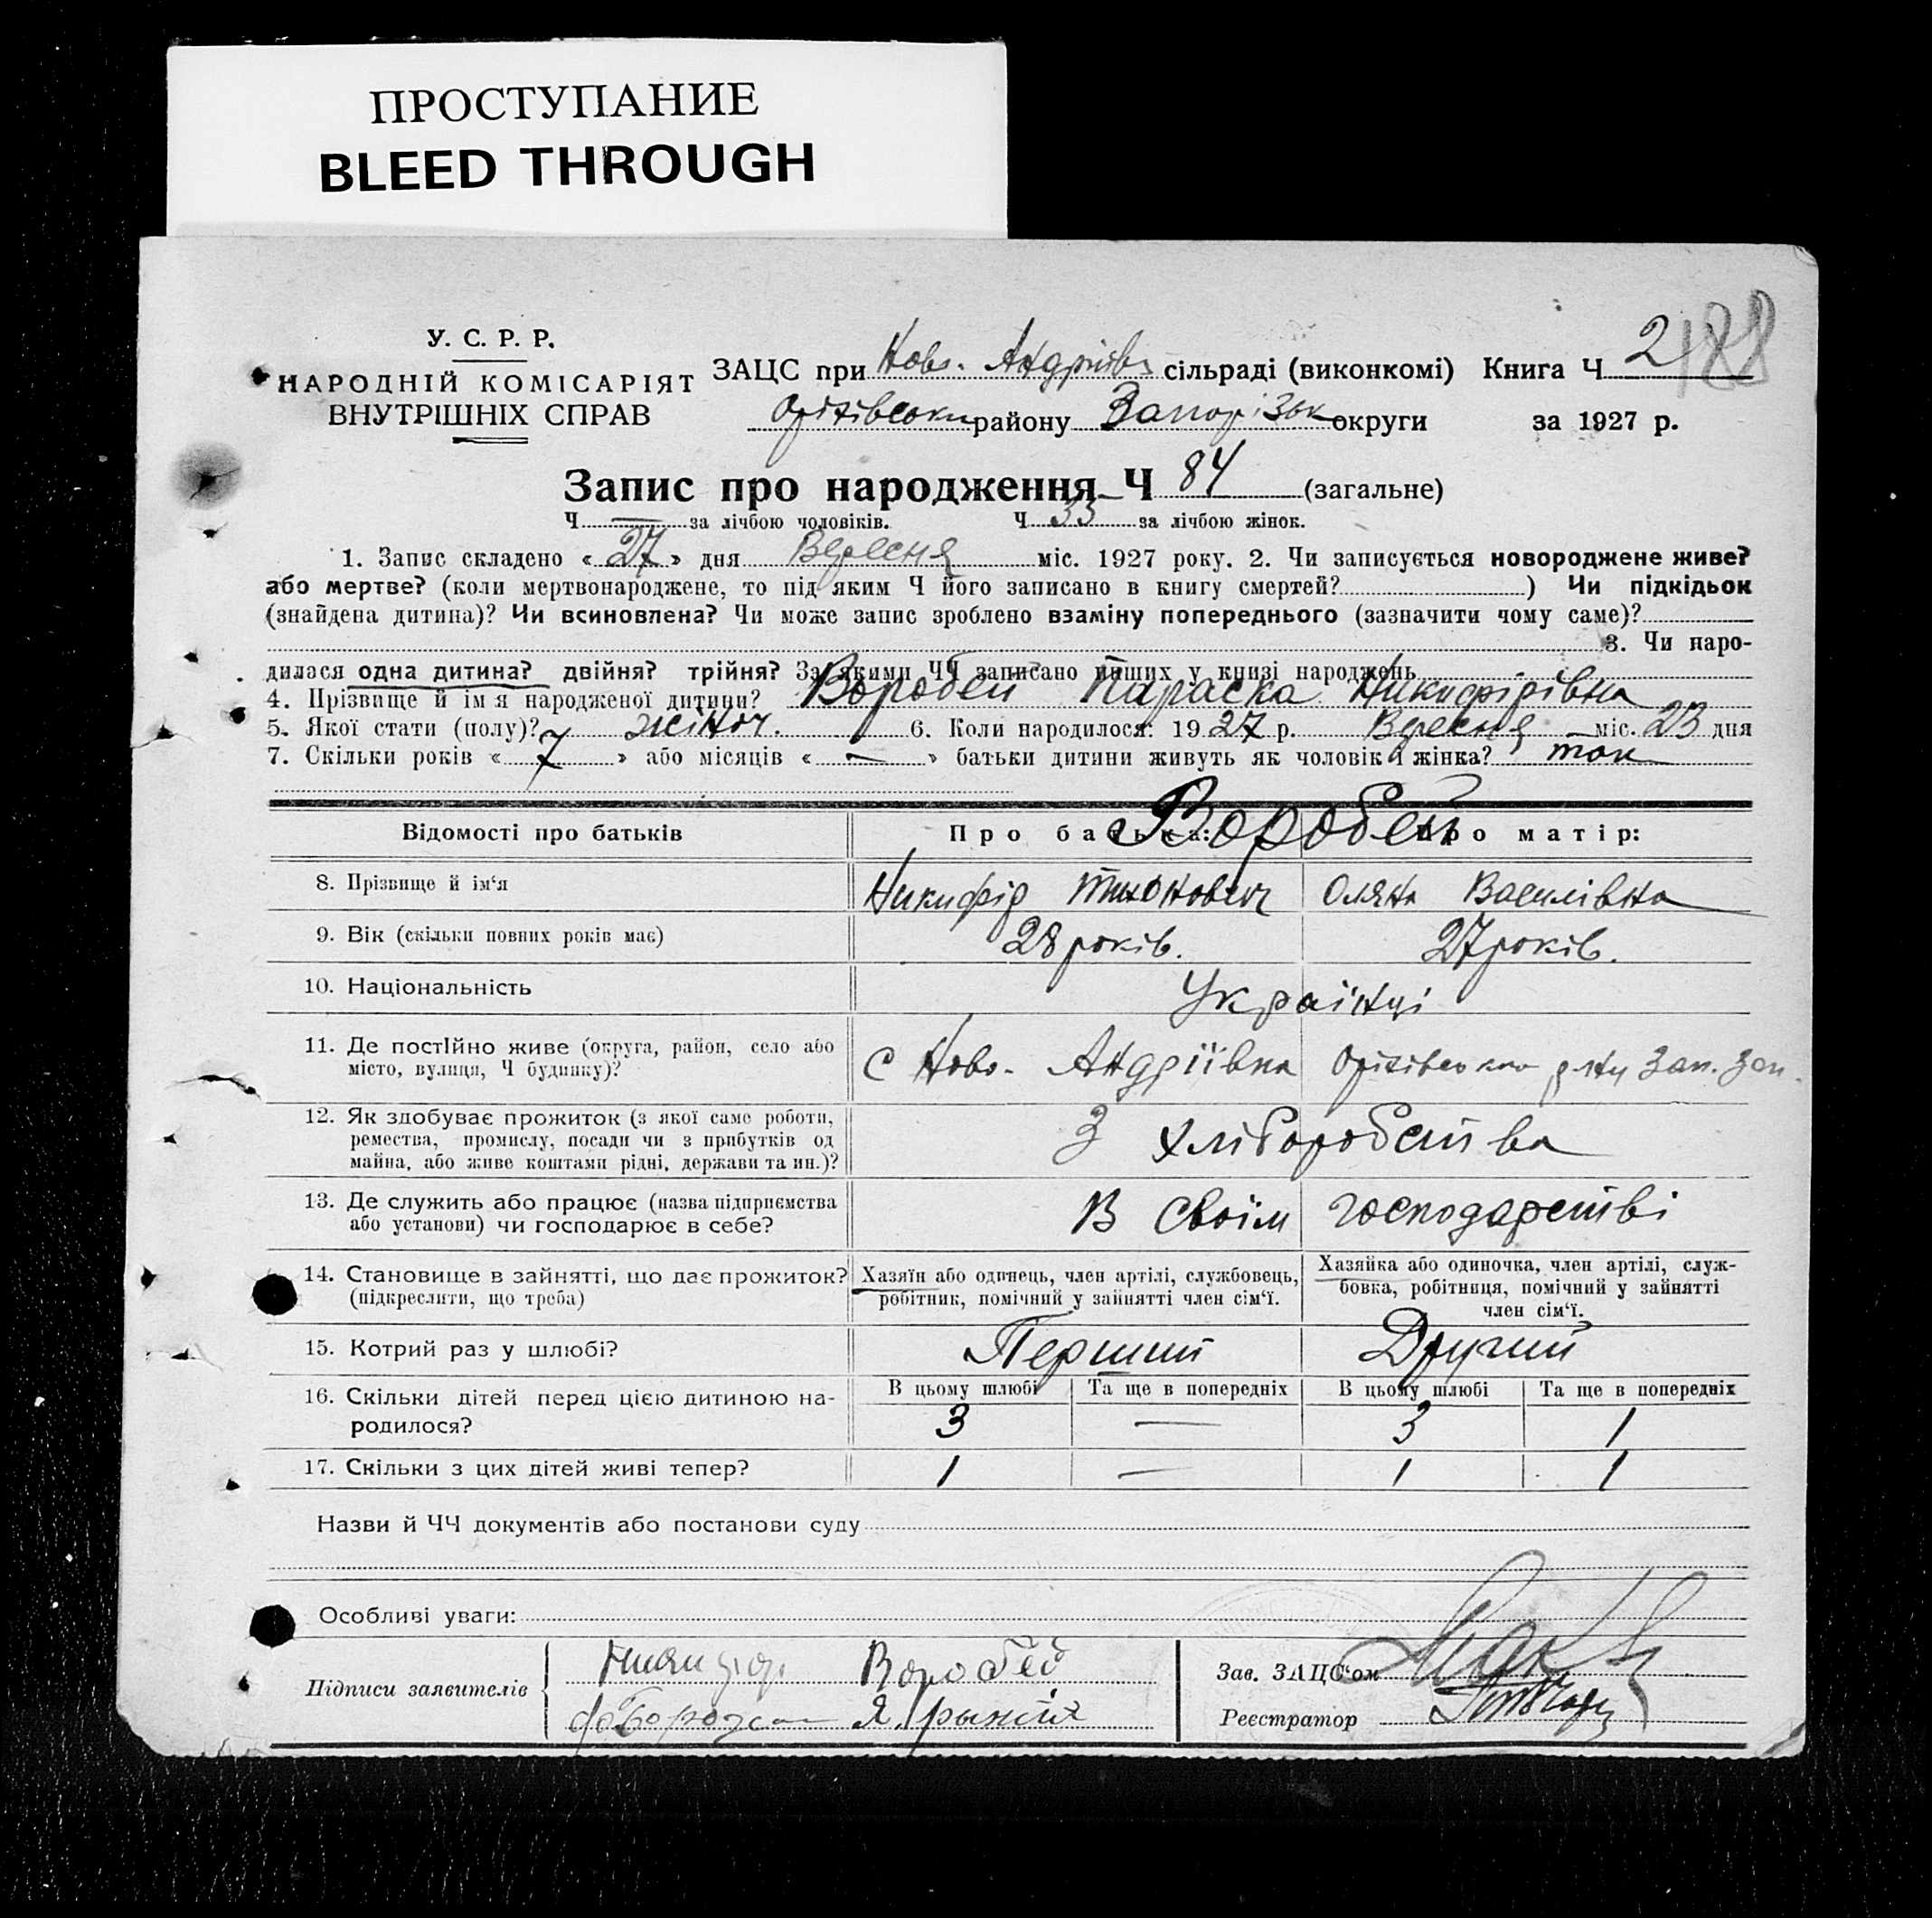 ПРОСТУПАНИЕ
BLEED THROUGH
У. С. Р. Р.
НАРОДНІЙ КОМІСАРІЯТ
ВНУТРІШНІХ СПРАВ
188
ЗАЦС при Ново. Андріївк сільраді (виконкомі) Книга Ч 2
Оріхівськ району Запоріжськ округи за 1927 р.
Запис про народження Ч 84 (загальне)
Ч — за лічбою чоловіків. Ч 35 за лічбою жінок.
1. Запис складено « 27 » дня Вересня міс. 1927 року. 2. Чи записується новороджене живе?
або мертве? (коли мертвонароджене, то під яким Ч його записано в книгу смертей? ) Чи підкідьок
(знайдена дитина)? Чи всиновлена? Чи може запис зроблено взаміну попереднього (зазначити чому саме)?
3. Чи наро-
дилася одна дитина? двійня? трійня? За якими ЧЧ записано инших у книзі народжень
4. Прізвище й ім'я народженої дитини? Воробей Параска Никифірівна
5. Якої стати (полу)? жіноч. 6. Коли народилося: 1927 р. Вересня міс. 23 дня
7. Скільки років « 7 » або місяців « — » батьки дитини живуть як чоловік і жінка? так
Відомості про батьків Про батька: Воробей Про матір:
8. Прізвище й ім'я Никифір Тихонович Оляна Василівна
9. Вік (скільки повних років має) 28 років. 27 років.
10. Національність Українці
11. Де постІйно живе (округа, район, село або
місто, вулиця, Ч будинку)? С Ново. Андріївка Оріхівського р-ну Зап.
12. Як здобуває прожиток (з якої саме роботи,
ремества, промислу, посади чи з прибутків од
майна, або живе коштами рідні, держави та ин.)? З хліборобства
13. Де служить або працює (назва підприємства
або установи) чи господарює в себе? В своїм господарстві
14. Становище в зайнятті, що дає прожиток?
(підкреслити, що треба)
Хазяїн або одинець, член артілі, службовець,
робітник, помічний у зайнятті член сім'ї.
Хазяйка або одиночка, член артілі, служ-
бовка, робітниця, помічний у зайнятті
член сім'ї.
15. Котрий раз у шлюбі? Перший Другий
16. Скільки дітей перед цією дитиною на-
родилося?
В цьому шлюбі Та ще в попередніх В цьому шлюбі Та ще в попередніх
3 — 3 1
17. Скільки з цих дітей живі тепер? 1 — 1 1
Назви й ЧЧ документів або постанови суду
Особливі уваги:
Підписи заявителів Воробей
Я.
Зав. ЗАЦС'ом
Реєстратор